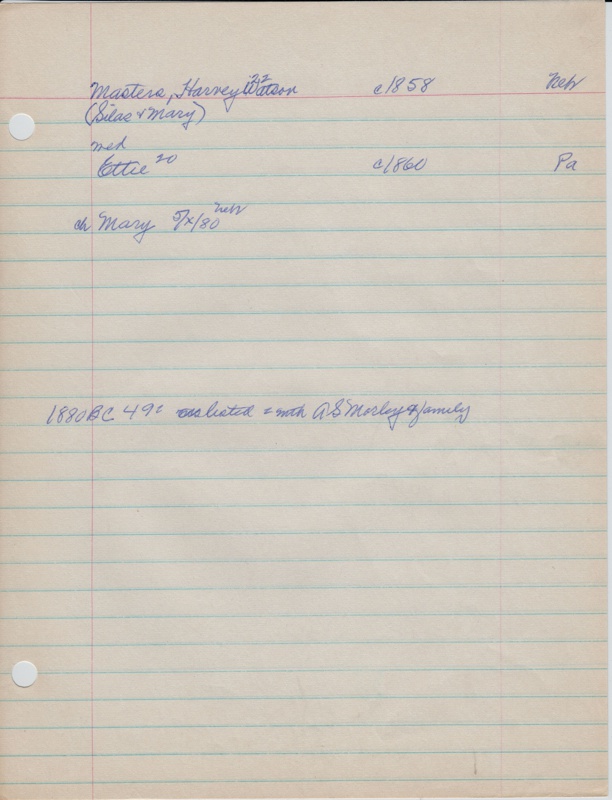 Masters, Harvey Watson 22 c1858 Neb
(Silas & Mary)
med
Ettie 20 c1860 Pa
ch Mary 5/x/80 neb
1880 BC 49: listed = with A S Morley & family